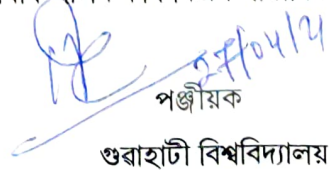 27/04/21
পঞ্জীয়ক
গুৱাহাটী বিশ্ববিদ্যালয়